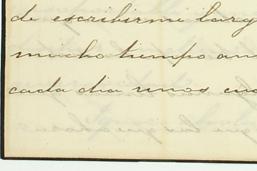 de escribirme larg
mucho tiempo an
cada dia unos cua